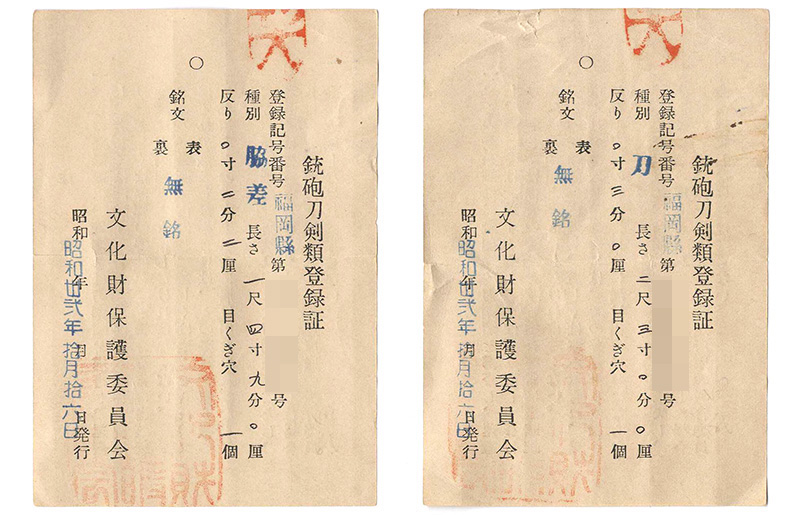 銃砲刀剣類登録証
登録記号番号 福岡縣 第 号
種別 脇差 長さ 一尺四寸九分〇厘
反り 〇寸二分二厘 目くぎ穴 一個
〇
銘文 表
裏
無銘
文化財保護委員会
昭和 年 月 日発行
昭和卅弐年拾月拾六日
銃砲刀剣類登録証
登録記号番号 福岡縣 第 号
種別 刀 長さ 二尺三寸〇分〇厘
反り 〇寸三分〇厘 目くぎ穴 一個
〇
銘文 表
裏
無銘
文化財保護委員会
昭和 年 月 日発行
昭和卅弐年拾月拾六日